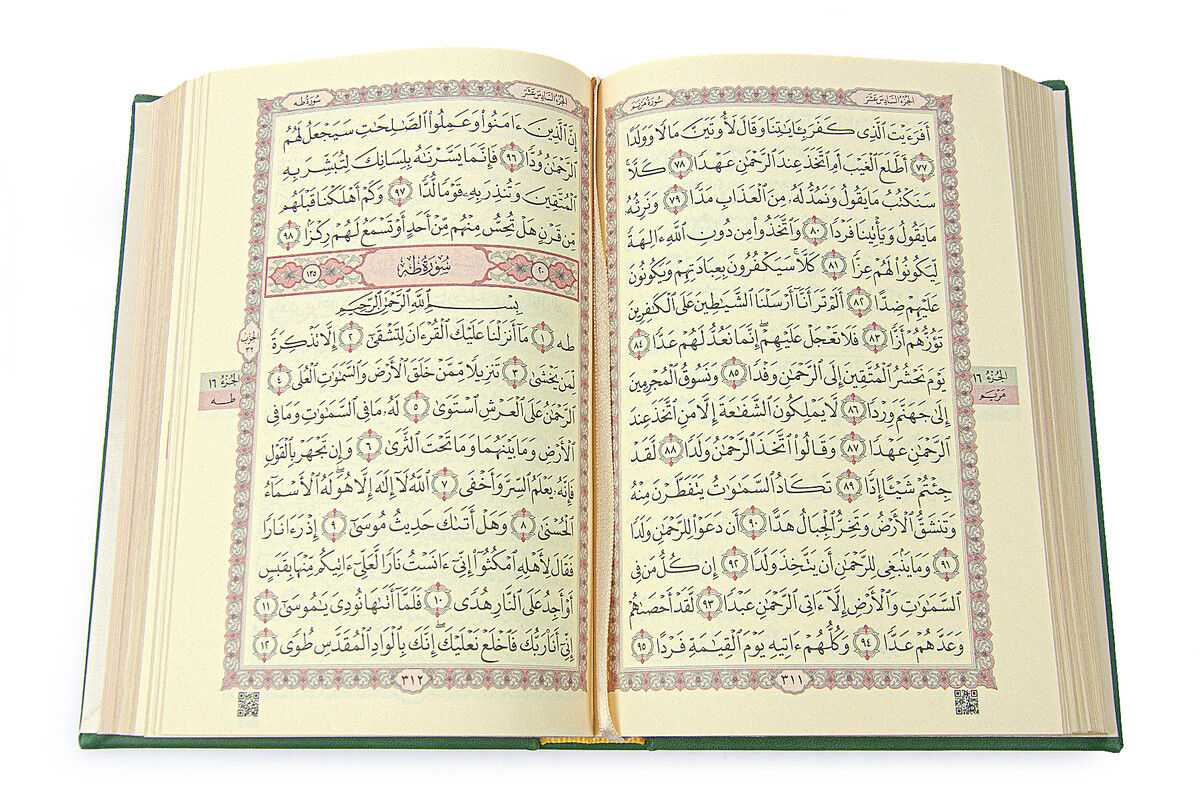 سورة مريم
الجزء السادس عشر
أَفَرَءَيْتَ ٱلَّذِى كَفَرَ بِـَٔايَٰتِنَا وَقَالَ لَأُوتَيَنَّ مَالًا وَوَلَدًا
٧٧ أَطَّلَعَ ٱلْغَيْبَ أَمِ ٱتَّخَذَ عِندَ ٱلرَّحْمَٰنِ عَهْدًا ٧٨ كَلَّا
سَنَكْتُبُ مَا يَقُولُ وَنَمُدُّ لَهُۥ مِنَ ٱلْعَذَابِ مَدًّا ٧٩ وَنَرِثُهُۥ
مَا يَقُولُ وَيَأْتِينَا فَرْدًا ٨٠ وَٱتَّخَذُوا۟ مِن دُونِ ٱللَّهِ ءَالِهَةً
لِّيَكُونُوا۟ لَهُمْ عِزًّا ٨١ كَلَّا سَيَكْفُرُونَ بِعِبَادَتِهِمْ وَيَكُونُونَ
عَلَيْهِمْ ضِدًّا ٨٢ أَلَمْ تَرَ أَنَّآ أَرْسَلْنَا ٱلشَّيَٰطِينَ عَلَى ٱلْكَٰفِرِينَ
تَؤُزُّهُمْ أَزًّا ٨٣ فَلَا تَعْجَلْ عَلَيْهِمْ إِنَّمَا نَعُدُّ لَهُمْ عَدًّا ٨٤
يَوْمَ نَحْشُرُ ٱلْمُتَّقِينَ إِلَى ٱلرَّحْمَٰنِ وَفْدًا ٨٥ وَنَسُوقُ ٱلْمُجْرِمِينَ
إِلَىٰ جَهَنَّمَ وِرْدًا ٨٦ لَّا يَمْلِكُونَ ٱلشَّفَٰعَةَ إِلَّا مَنِ ٱتَّخَذَ عِندَ
ٱلرَّحْمَٰنِ عَهْدًا ٨٧ وَقَالُوا۟ ٱتَّخَذَ ٱلرَّحْمَٰنُ وَلَدًا ٨٨ لَّقَدْ
جِئْتُمْ شَيْـًٔا إِدًّا ٨٩ تَكَادُ ٱلسَّمَٰوَٰتُ يَتَفَطَّرْنَ مِنْهُ
وَتَنشَقُّ ٱلْأَرْضُ وَتَخِرُّ ٱلْجِبَالُ هَدًّا ٩٠ أَن دَعَوْا۟ لِلرَّحْمَٰنِ وَلَدًا
٩١ وَمَا يَنۢبَغِى لِلرَّحْمَٰنِ أَن يَتَّخِذَ وَلَدًا ٩٢ إِن كُلُّ مَن فِى
ٱلسَّمَٰوَٰتِ وَٱلْأَرْضِ إِلَّآ ءَاتِى ٱلرَّحْمَٰنِ عَبْدًا ٩٣ لَّقَدْ أَحْصَىٰهُمْ
وَعَدَّهُمْ عَدًّا ٩٤ وَكُلُّهُمْ ءَاتِيهِ يَوْمَ ٱلْقِيَٰمَةِ فَرْدًا ٩٥
٣١١
الجزء ١٦
مريم
سورة طه
الجزء السادس عشر
إِنَّ ٱلَّذِينَ ءَامَنُوا۟ وَعَمِلُوا۟ ٱلصَّٰلِحَٰتِ سَيَجْعَلُ لَهُمُ
ٱلرَّحْمَٰنُ وُدًّا ٩٦ فَإِنَّمَا يَسَّرْنَٰهُ بِلِسَانِكَ لِتُبَشِّرَ بِهِ
ٱلْمُتَّقِينَ وَتُنذِرَ بِهِۦ قَوْمًا لُّدًّا ٩٧ وَكَمْ أَهْلَكْنَا قَبْلَهُم
مِّن قَرْنٍ هَلْ تُحِسُّ مِنْهُم مِّنْ أَحَدٍ أَوْ تَسْمَعُ لَهُمْ رِكْزًۢا ٩٨
٢٠ سُورَةُ طه ١٣٥
بِسْمِ ٱللَّهِ ٱلرَّحْمَٰنِ ٱلرَّحِيمِ
طه ١ مَآ أَنزَلْنَا عَلَيْكَ ٱلْقُرْءَانَ لِتَشْقَىٰٓ ٢ إِلَّا تَذْكِرَةً
لِّمَن يَخْشَىٰ ٣ تَنزِيلًا مِّمَّنْ خَلَقَ ٱلْأَرْضَ وَٱلسَّمَٰوَٰتِ ٱلْعُلَى ٤
ٱلرَّحْمَٰنُ عَلَى ٱلْعَرْشِ ٱسْتَوَىٰ ٥ لَهُۥ مَا فِى ٱلسَّمَٰوَٰتِ وَمَا فِى
ٱلْأَرْضِ وَمَا بَيْنَهُمَا وَمَا تَحْتَ ٱلثَّرَىٰ ٦ وَإِن تَجْهَرْ بِٱلْقَوْلِ
فَإِنَّهُۥ يَعْلَمُ ٱلسِّرَّ وَأَخْفَى ٧ ٱللَّهُ لَآ إِلَٰهَ إِلَّا هُوَ لَهُ ٱلْأَسْمَآءُ
ٱلْحُسْنَىٰ ٨ وَهَلْ أَتَىٰكَ حَدِيثُ مُوسَىٰٓ ٩ إِذْ رَءَا نَارًا
فَقَالَ لِأَهْلِهِ ٱمْكُثُوٓا۟ إِنِّىٓ ءَانَسْتُ نَارًا لَّعَلِّىٓ ءَاتِيكُم مِّنْهَا بِقَبَسٍ
أَوْ أَجِدُ عَلَى ٱلنَّارِ هُدًى ١٠ فَلَمَّآ أَتَىٰهَا نُودِىَ يَٰمُوسَىٰٓ ١١
إِنِّىٓ أَنَا۠ رَبُّكَ فَٱخْلَعْ نَعْلَيْكَ إِنَّكَ بِٱلْوَادِ ٱلْمُقَدَّسِ طُوًى ١٢
٣١٢
الحزب ٣٢
الجزء ١٦
طه